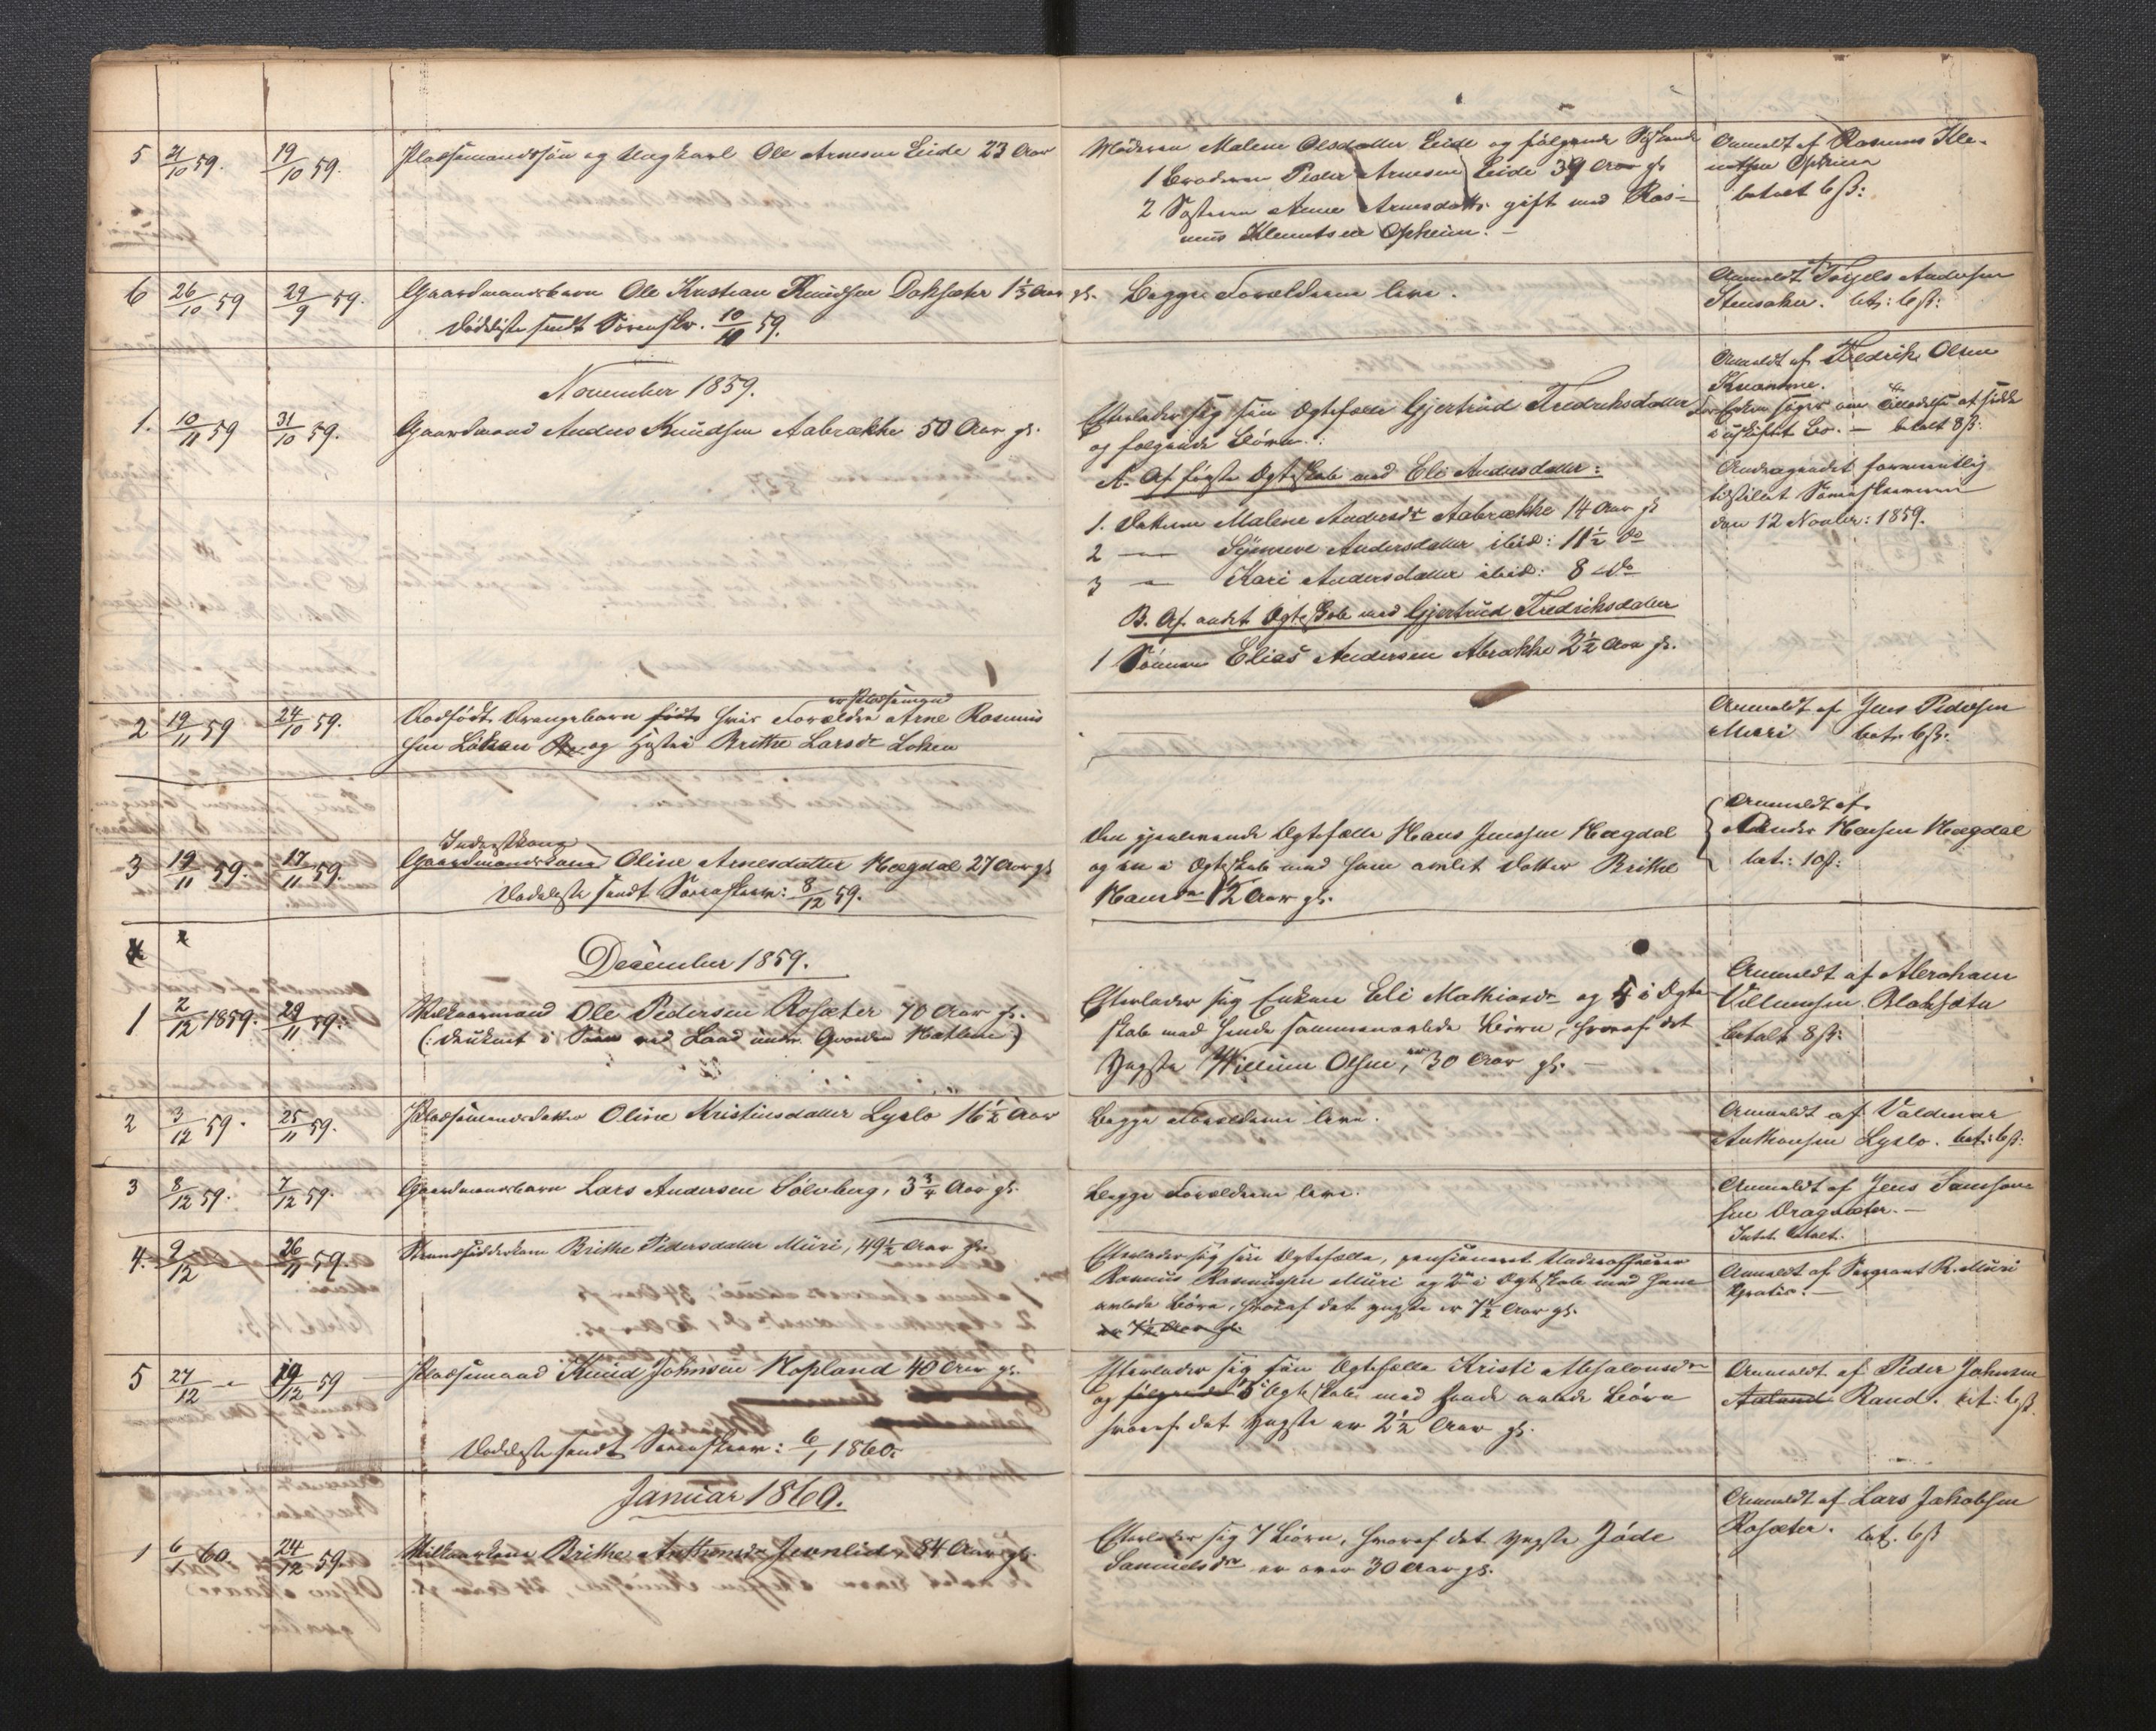 5 21/10 59. 19/10 59. Pladsemandssön og Ungkarl Ole Arnesen Eide 23 Aar
Moderen Malene Olsdatter Eide og følgende Søskende
1 Broderen Peder Arnesen Eide 39 Aar gl.
2 Søsteren Anne Arnesdatter gift med Ras-
mus Klemetsen Opheim. –
Anmeldt af Rasmus Kle-
metsen Opheim
betalt 6 ß:
6 26/10 59 29/9 59. Gaardmandsbarn Ole Kristian Knudsen Doksæter 1 1/3 Aar gl.
Dødsliste sendt Sorenskr. 10/11 59.
Begge Forældrene leve.
Anmeldt Andersen
Stensaker. bet: 6 ß:
November 1859.
1. 10/11 59 31/10 59. Gaardmand Anders Knudsen Aabrække 50 Aar gl.
Efterlader sig sin Ægtefælle Gjertrud Fredriksdatter
og følgende Börn:
A. Af første Ægteskab med Eli Andersdatter:
1. Datteren Malene Andersdr Aabrække 14 Aar gl
2 — Synneve Andersdatter ibid: 11 1/2 do
3 — Kari Andersdatter ibid: 8 do
B. Af andet Ægteskab med Gjertrud Fredriksdatter
1 Sönnen Elias Andersen Abrække 2 1/2 Aar gl.
Anmeldt af Fredrik Olsen
Kvamme.
Enken søger om Tilladelse at sidde
i uskiftet Bo. – betalt 8 ß:
Andragendet
tilstillet Sorenskriveren
den 12 Novbr: 1859.
2 19/11 59 24/10 59. Dødfødt Drengebarn født hvis Forældre er Pladsemand Arne Rasmus
sen Löken og Hustru Brithe Larsdr Loken
Anmeldt af Jens Pedersen
Muri bet. 6 ß:
3 19/11 59. 17/11 59. Inderstkone Gaardmandskone Oline Arnesdatter Hægdal 27 Aar gl
Dødsliste sendt Sorenskriv: 8/12 59.
Den gjenlevende Ægtefælle Hans Jenssen Hægdal
og en i Ægteskab med ham avlet Datter Brithe
Hansdr 1/2 Aar gl.
Anmeldt af
Anders Hansen Hægdal
bet: 10 ß:
December 1859.
1 2/12 1859. 29/11 59: Kaarmand Ole Pedersen Rosæter 70 Aar gl.
(: druknet i Søen ved Land under Gaarden :)
Efterlader sig Enken Eli Mathiasdr og 5 i Ægte-
skab med hende sammenavlede Börn, hvoraf det
Yngste Willum Olsen, er 30 Aar gl. –
Anmeldt af Abraham
Villumsen
betalt 8 ß:
2 3/12 59. 25/11 59. Pladsemandsdatter Oline Kristensdatter Lyslo 16 1/2 Aar
Begge Forældrene leve.
Anmeldt af Valdemar
Anthonsen Lyslo. bet: 6 ß:
3 8/12 59. 7/12 59. Gaardmandsbarn Lars Andersen Sölvberg, 3 3/4 Aar gl.
Begge Forældrene leve.
Anmeldt af Jens Samson-
sen Dragsæter. –
Intet betalt.
4. 9/12 26/11 59. Strandsidderkone Brithe Pedersdatter Muri, 49 1/2 Aar gl.
Efterlader sig sin Ægtefælle, pensioneret Underofficeer
Rasmus Rasmussen Muri og 2 i Ægteskab med ham
avlede Börn, hvoraf det yngste er 7 1/2 Aar gl.
er 7 1/2 Aar gl.
Anmeldt af Sergeant R. Muri
Gratis. –
5 27/12 – 19/12 59 Pladsemand Knud Johnsen Hopland 40 Aar gl.
Dødsliste sendt Sorenskriv: 6/1 1860.
Efterlader sig sin Ægtefælle Kristi Absalonsdr
og følgende 5 i Ægteskab med hende avlede Börn
hvoraf det Yngste er 2 1/2 Aar gl.
Anmeldt af Peder Johnsen
Rand. bet: 6 ß.
Januar 1860.
1 6/1 60 24/12 59. Brithe Anthonsdr 84 Aar gl.
Efterlader sig 7 Börn, hvoraf det yngste Jöde
Samuelsdr er over 30 Aar gl.
Anmeldt af Lars Jakobsen
Rosæter. bet. 6 ß